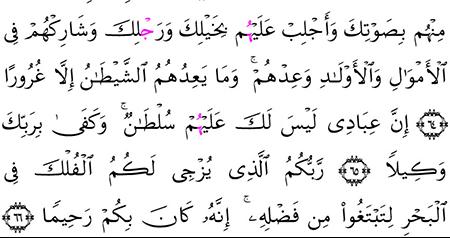 مِنْهُم بِصَوْتِكَ وَأَجْلِبْ عَلَيْهُم بِخَيْلِكَ وَرَجْلِكَ وَشَارِكْهُمْ فِى
ٱلْأَمْوَٰلِ وَٱلْأَوْلَـٰدِ وَعِدْهُمْ ۚ وَمَا يَعِدُهُمُ ٱلشَّيْطَـٰنُ إِلَّا غُرُورًا
﴿٦٤﴾ إِنَّ عِبَادِى لَيْسَ لَكَ عَلَيْهُمْ سُلْطَـٰنٌ ۚ وَكَفَىٰ بِرَبِّكَ
وَكِيلًا ﴿٦٥﴾ رَّبُّكُمُ ٱلَّذِى يُزْجِى لَكُمُ ٱلْفُلْكَ فِى
ٱلْبَحْرِ لِتَبْتَغُوا۟ مِن فَضْلِهِۦٓ ۚ إِنَّهُۥ كَانَ بِكُمْ رَحِيمًا ﴿٦٦﴾